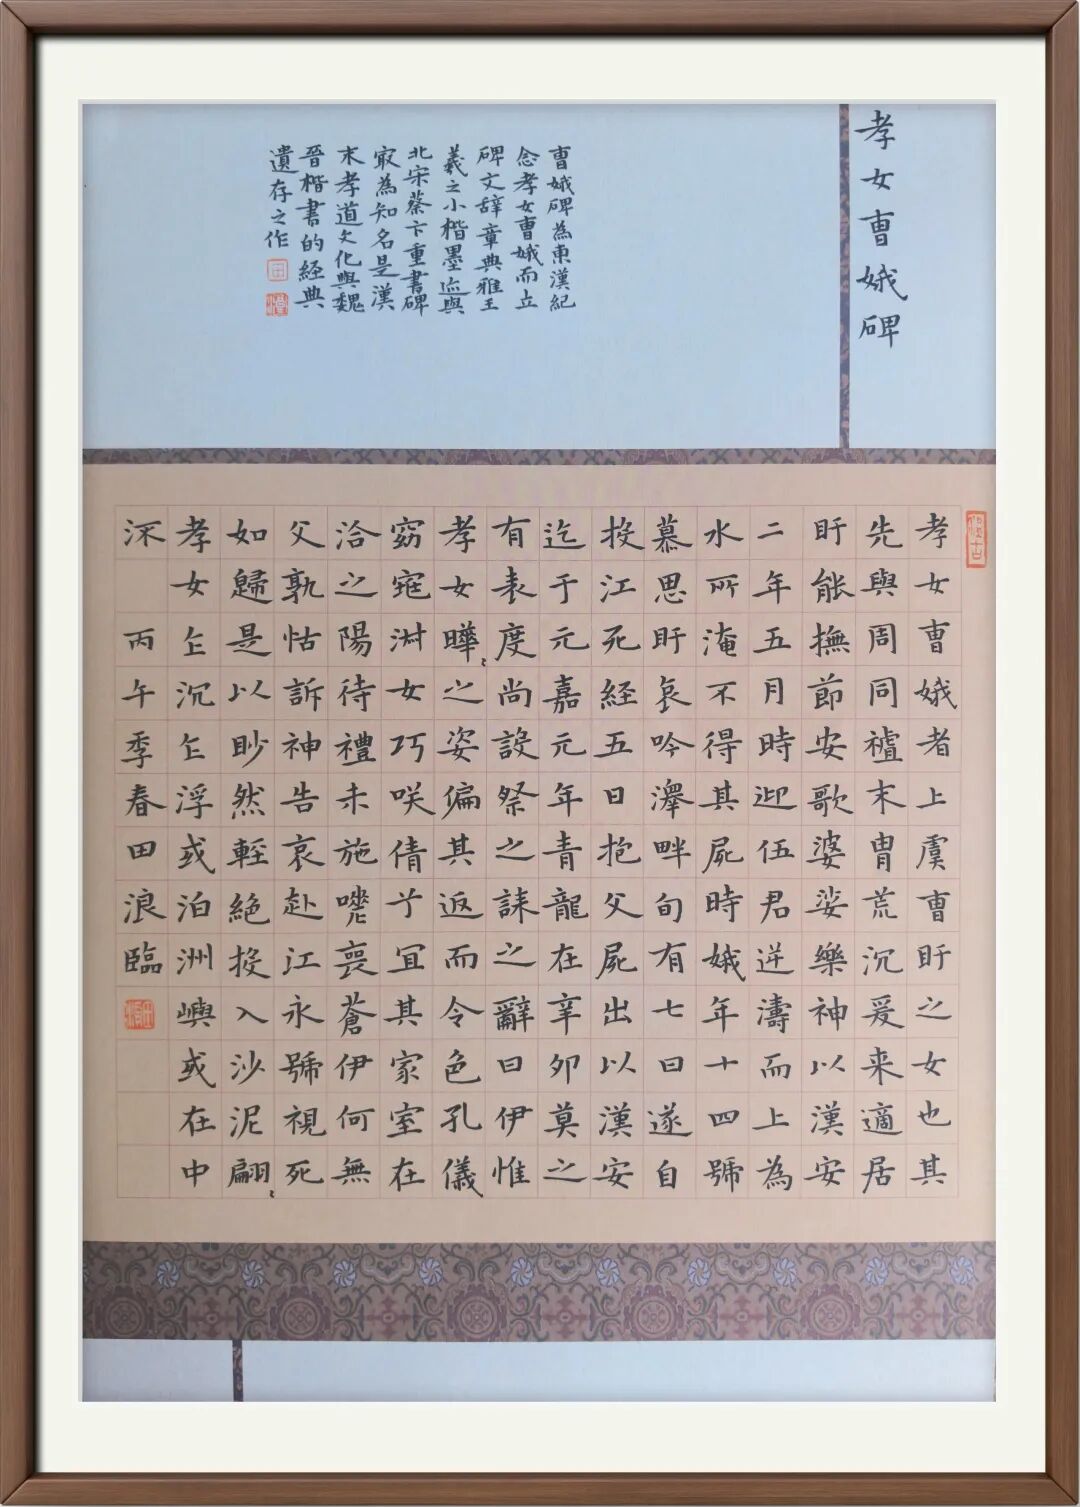 孝女曹娥碑
曹娥碑為東漢紀
念孝女曹娥而立
碑文辭章典雅王
羲之小楷墨迹與
北宋蔡卞重書碑
㝡為知名是漢
末孝道文化與魏
晉楷書的経典
遺存之作
孝女曹娥者上虞曹盱之女也其
先與周同末胄荒沉爰来適居
盱能撫節安歌婆娑樂神以漢安
二年五月時迎伍君逆濤而上為
水所淹不得其屍時娥年十四號
慕思盱哀吟澤畔旬有七日遂自
投江死経五日抱父屍出以漢安
迄于元嘉元年青龍在辛卯莫之
有表度尚設祭之誄之辭曰伊惟
孝女曄〻之姿偏其返而令色孔儀
窈窕淑女巧咲倩兮宜其家室在
洽之陽待禮未施嗟喪蒼伊何無
父孰怙訴神告哀赴江永號視死
如歸是以眇然輕絕投入沙泥翩〻
孝女乍沉乍浮或泊洲嶼或在中
深 丙午季春田浪臨